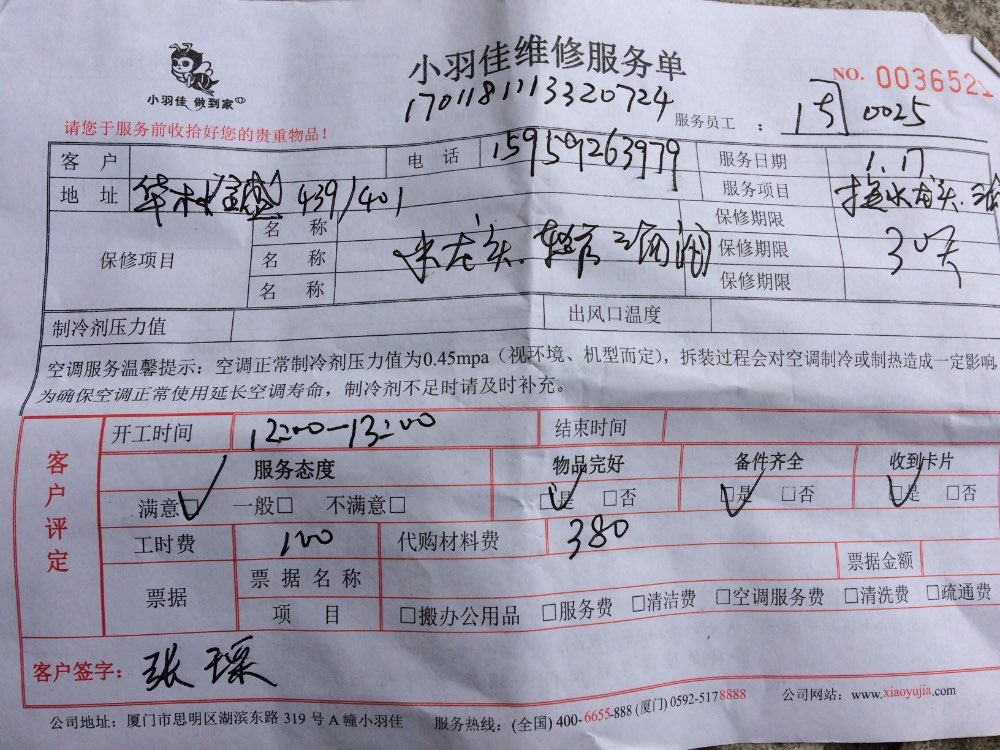 小羽佳维修服务单
NO. 0036521
小羽佳 做到家
1701181113320724
请您于服务前收拾好您的贵重物品！
服务员工 ： 1号 0025
客 户 电 话 15959263979 服务日期 1.17
地 址 439/401 服务项目 换水龙头.
保修项目 名 称 保修期限
名 称 水龙头. 三角阀 保修期限 30天
名 称 保修期限
制冷剂压力值 出风口温度
空调服务温馨提示：空调正常制冷剂压力值为0.45mpa（视环境、机型而定），拆装过程会对空调制冷或制热造成一定影响，
为确保空调正常使用延长空调寿命，制冷剂不足时请及时补充。
客户评定
开工时间 12:00-13:00 结束时间
服务态度 物品完好 备件齐全 收到卡片
满意□ 一般□ 不满意□ □是 □否 □是 □否 □是 □否
工时费 100 代购材料费 380
票据 票据名称 票据金额
项 目 □搬办公用品 □服务费 □清洁费 □空调服务费 □清洗费 □疏通费
客户签字： 张瑶
公司地址：厦门市思明区湖滨东路 319 号 A 幢小羽佳 服务热线：(全国) 400-6655-888 (厦门) 0592-5178888 公司网站：www.xiaoyujia.com